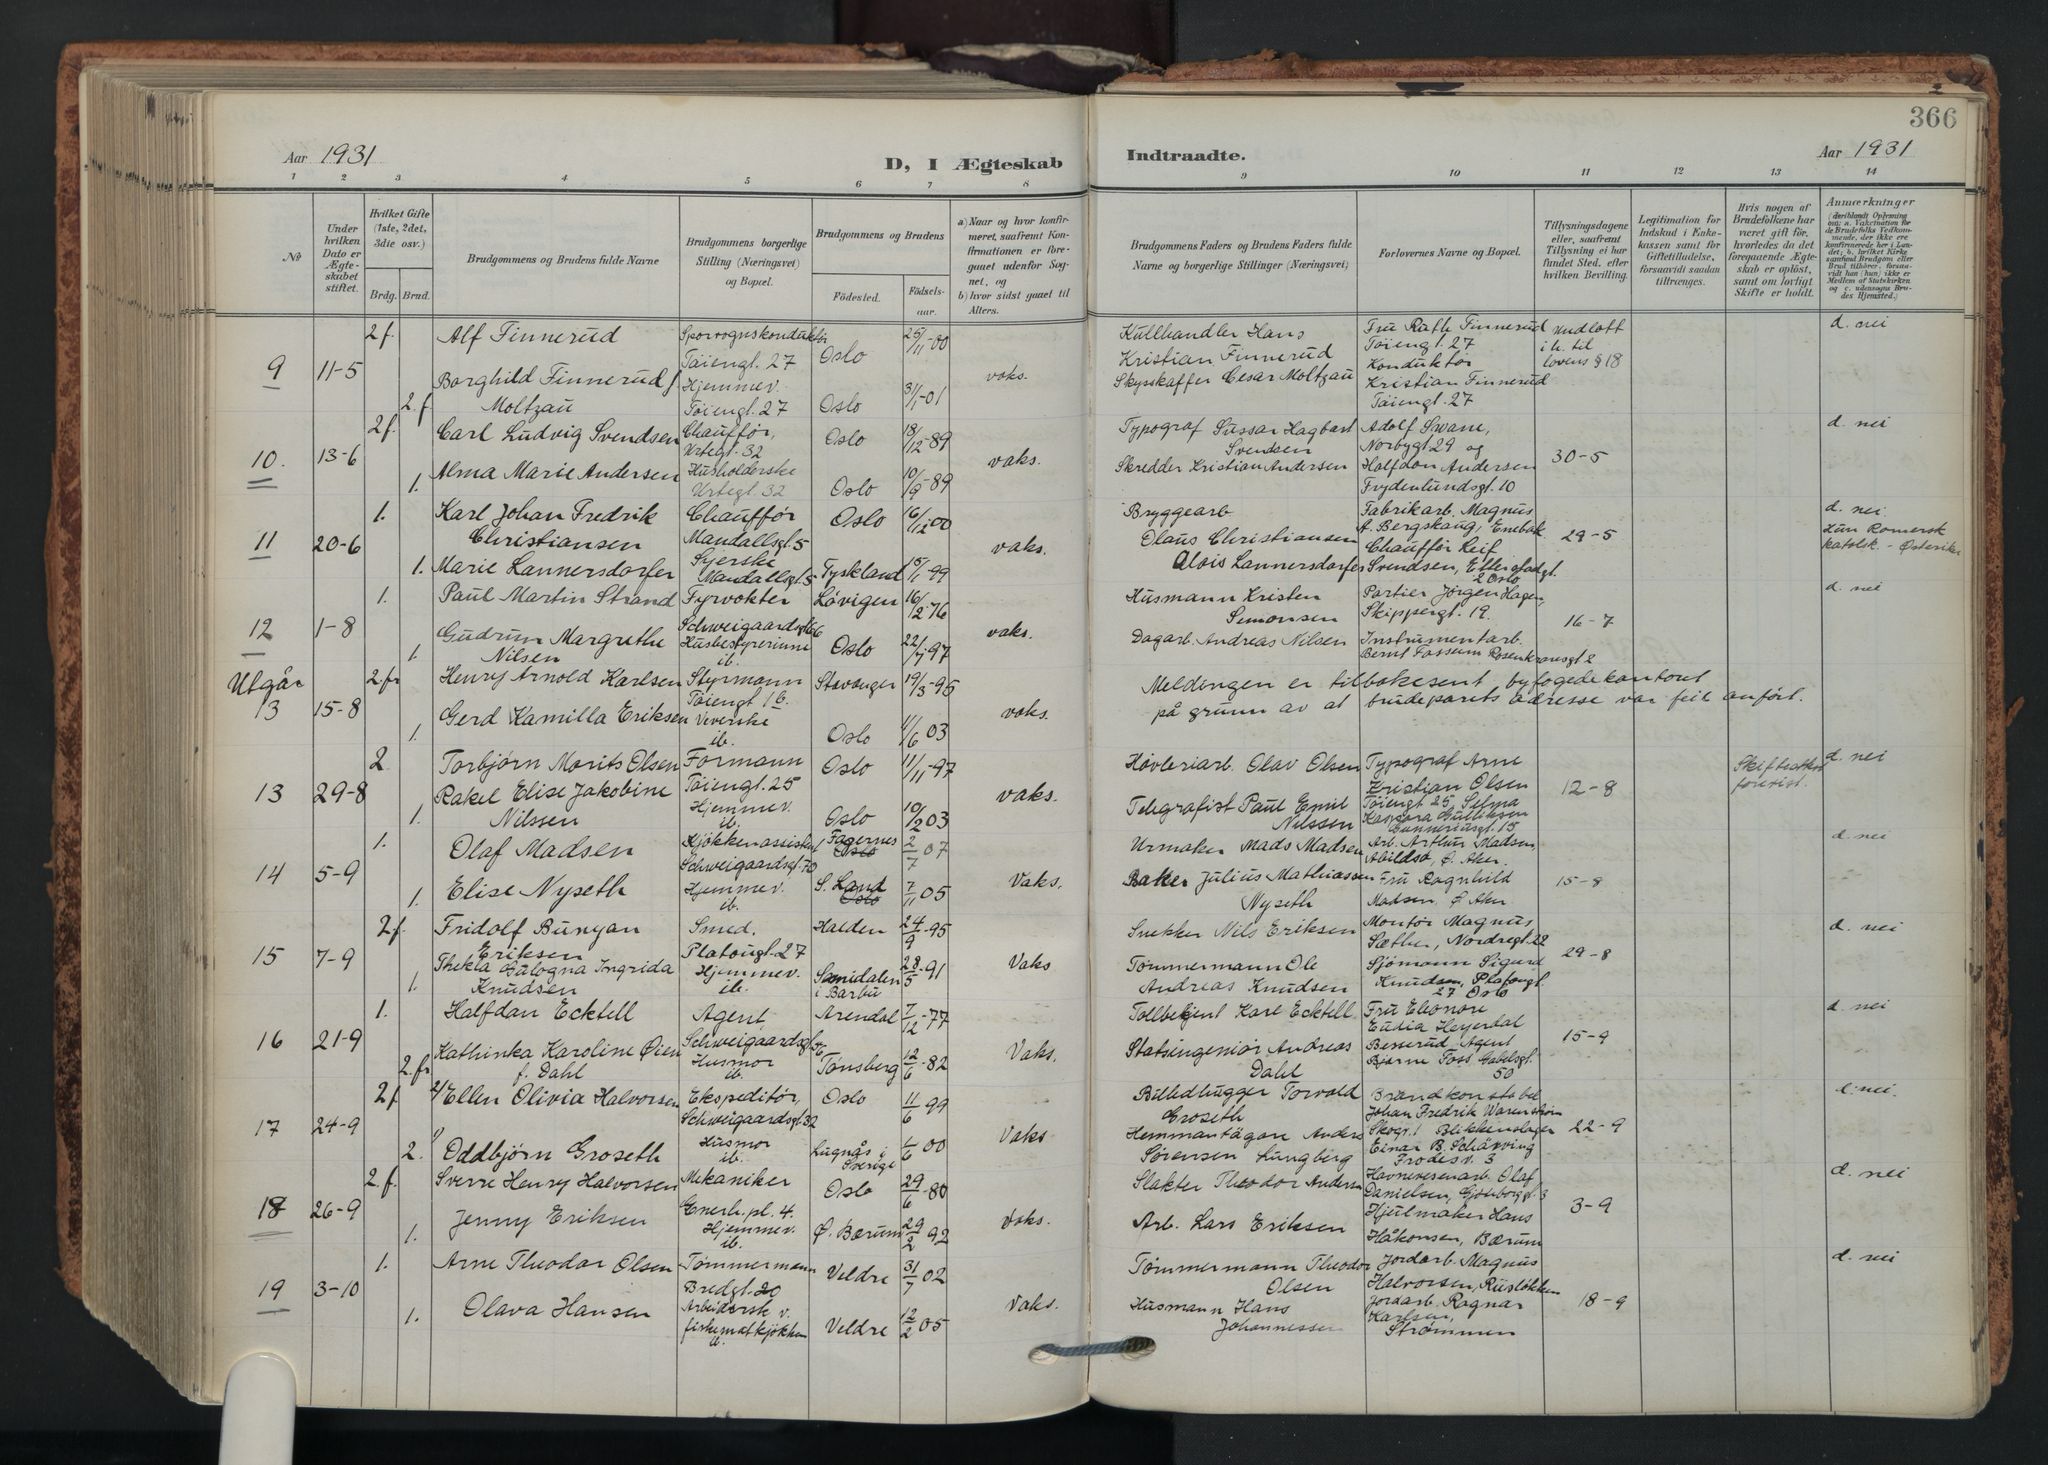 366
Aar 1931
D, I Ægteskab
Indtraadte.
Aar 1931
1 2 3 4 5 6 7 8 9 10 11 12 13 14
No
Under hvilken Dato er Ægteskabet stiftet.
Hvilket Gifte (1ste, 2det, 3die osv.)
Brdg. Brud.
Brudgommens og Brudens fulde Navne
Brudgommens borgerlige Stilling (Næringsvei) og Bopæl.
Brudgommens og Brudens
Födested.
Födselsaar.
a) Naar og hvor konfirmeret, saafremt Konfirmationen er foregaaet udenfor Sognet, og
b) hvor sidst gaaet til Alters.
Brudgommens Faders og Brudens Faders fulde Navne og borgerlige Stillinger (Næringsvei)
Forlovernes Navne og Bopæl.
Tillysningsdagene eller, saafremt Tillysning ei har fundet Sted, efter hvilken Bevilling.
Legitimation for Indskud i Enkekassen samt for Giftetilladelse, forsaavidt saadan tiltrænges.
Hvis nogen af Brudefolkene har været gift før, hvorledes da det foregaaende Ægteskab er oplöst, samt om lovligt Skifte er holdt.
Anmærkninger
9 11-5
2f. Alf Finnerud
Sporvognskonduktør
Tøiengt. 27
Oslo 25/11-00
vaks.
Kullhandler Hans
Kristian Finnerud
Fru Ruth Finnerud
Tøiengt. 27
Konduktør
Kristian Finnerud
Tøiengt. 27
Undlatt
i h. til
lovens § 18
d. nei
2.f Borghild Finnerud f.
Moltzau
Hjemmev.
Tøiengt. 27
Oslo 3/1-01
Skysskaffer Cesar Moltzau
10. 13-6
2f. Carl Ludvig Svendsen
Chauffør,
Urtegt. 32
Oslo 18/12-89
vaks.
Typograf Gussar Hagbart
Svendsen
Adolf Swane,
Norbygt 29 og
Halfdan Andersen
Frydenlundsgt. 10
30-5
d. nei
1. Alma Marie Andersen
Husholderske
Urtegt. 32
Oslo 10/9-89
Skredder Kristian Andersen
11 20-6
1. Karl Johan Fredrik
Christiansen
Chauffør
Mandallsgt. 5
Oslo 16/12 00
vaks.
Bryggearb
Olaus Christiansen
Fabrikarb. Magnus
A. Bergskaug, Enebak
Chauffør Leif
Svendsen, Ellingfadgt.
2 Oslo
29-5
d. nei
Hun Romersk
katolsk. - Østerike
1. Marie Lannersdorfer
Syerske
Mandallsgt. 5
Tyskland 15/1-99
Alois Lannersdorfer
12 1-8
1. Paul Martin Strand
Fyrvokter
Schweigaardsgt 66
Løvigen 16/2-76
vaks.
Husmann Kristen
Simonsen
Partier Jörgen Hagen,
Skippergt. 19.
Instrumentarb.
Bernt Fossum Rosenkransgt 2
16-7
d. nei
1. Gudrun Margrethe
Nilsen
Husbestyrerinne
ib.
Oslo 22/7-97
Dagarb. Andreas Nilsen
Utgår
13 15-8
2.fr Henry Arnold Karlsen
Styrmann
Tøiengt 16.
Stavanger 19/3-95
vaks.
Meldingen er tilbakesent byfogedekantoret
på grunn av at brudeparets adresse var feil anført.
1. Gerd Kamilla Eriksen
Veverske
ib.
Oslo 11/6 03
13 29-8
2 Torbjørn Morits Olsen
Formann
Tøiengt. 25
Oslo 11/11-97
vaks.
Høvleriarb. Olav Olsen
Typograf Arne
Kristian Olsen
Tøiengt 25 Selma
Kaspara Gulliksen
Gunneriusgt. 15
12-8
Skifteattest
forevist.
d. nei
1. Rakel Elise Jakobine
Nilssen
Hjemmev.
ib.
Oslo 10/2 03
Telegrafist Paul Emil
Nilssen
14 5-9
1. Olaf Madsen
Kjökkenassistent
Schweigaardsgt. 70
Fagernes
Oslo
2/7 07
Vaks.
Urmaker Mads Madsen
Arb. Arthur Madsen
Abildsø, Ø. Aker.
Fru Ragnhild
Madsen. Ø. Aker
15-8
d. nei
1. Elise Nyseth
Hjemmev.
ib.
S. Land
Oslo
7/11 05
Baker Julius Mathiassen
Nyseth
15 7-9
2f. Fridolf Bunyan
Eriksen
Smed.
Platougt. 27
Halden 24/9-95
Vaks
Snekker Nils Eriksen
Montør Magnus
Sæther, Nordregt. 22
Sjömann Sigurd
Knudsen, Platougt.
27 Oslo
29-8
d. nei
1. Thekla Gulogna Ingrida
Knudsen
Hjemmev.
ib.
Songdalen
i Barbu
28/5-91
Tømmermann Ole
Andreas Knudsen
16 21-9
1. Halfdan Ecktell
Agent
Schweigaardsgt. 56
Arendal 7/12-77
Vaks.
Tollbetjent Karl Ecktell
Fru Eleonore
Eudia Heyerdal
Besserud, Agent
Bjarne Foss Gabelsgt.
50
15-9
d. nei
2.fr Kathinka Karoline Øien
f. Dahl
Husmor
ib.
Tønsberg 12/6-82
Statsingeniør Andreas
Dahl
17 24-9
2f. 2/ Ellen Olivia Halvorsen
Ekspeditør,
Schweigaardsgt 32
Oslo 11/6 99
Vaks
Billedhugger Torvald
Groseth
Brandkonstabel
Johan Fredrik Warenskjøn
Skogr. 1 Blikkenslager
Einar B. Schärving
Frodesv. 3
22-9
d. nei.
2. Oddbjørn Groseth
Husmor
ib.
Lugnås i
Sverige
1/6 00
Hemmantägare Anders
Sørensen Lungberg
18 26-9
2.f. Sverre Henry Halvorsen
Mekaniker
Enerh. pl. 4.
Oslo 29/6-80
Vaks.
Slakter Theodor Andersen
Havnevesenarb. Olaf
Danielsen, Gjøviksgt. 3
Hjulmaker Hans
Håkonsen, Bærum
3-9
d. nei
1. Jenny Eriksen
Hjemmev.
ib.
Ø. Bærum 29/2 92
Arb. Lars Eriksen
19 3-10
1. Arne Theodor Olsen
Tømmermann
Bredgt. 20
Veldre 31/7 02
Vaks.
Tømmermann Theodor
Olsen
Jordarb. Magnus
Halvorsen, Rusløkken
Jordarb. Ragnar
Karlsen,
Strømmen
18-9
d. nei
1. Olava Hansen
Arbeidersk v.
fiskematkjøkken
ib.
Veldre 12/2 05
Husmann Hans
Johannessen